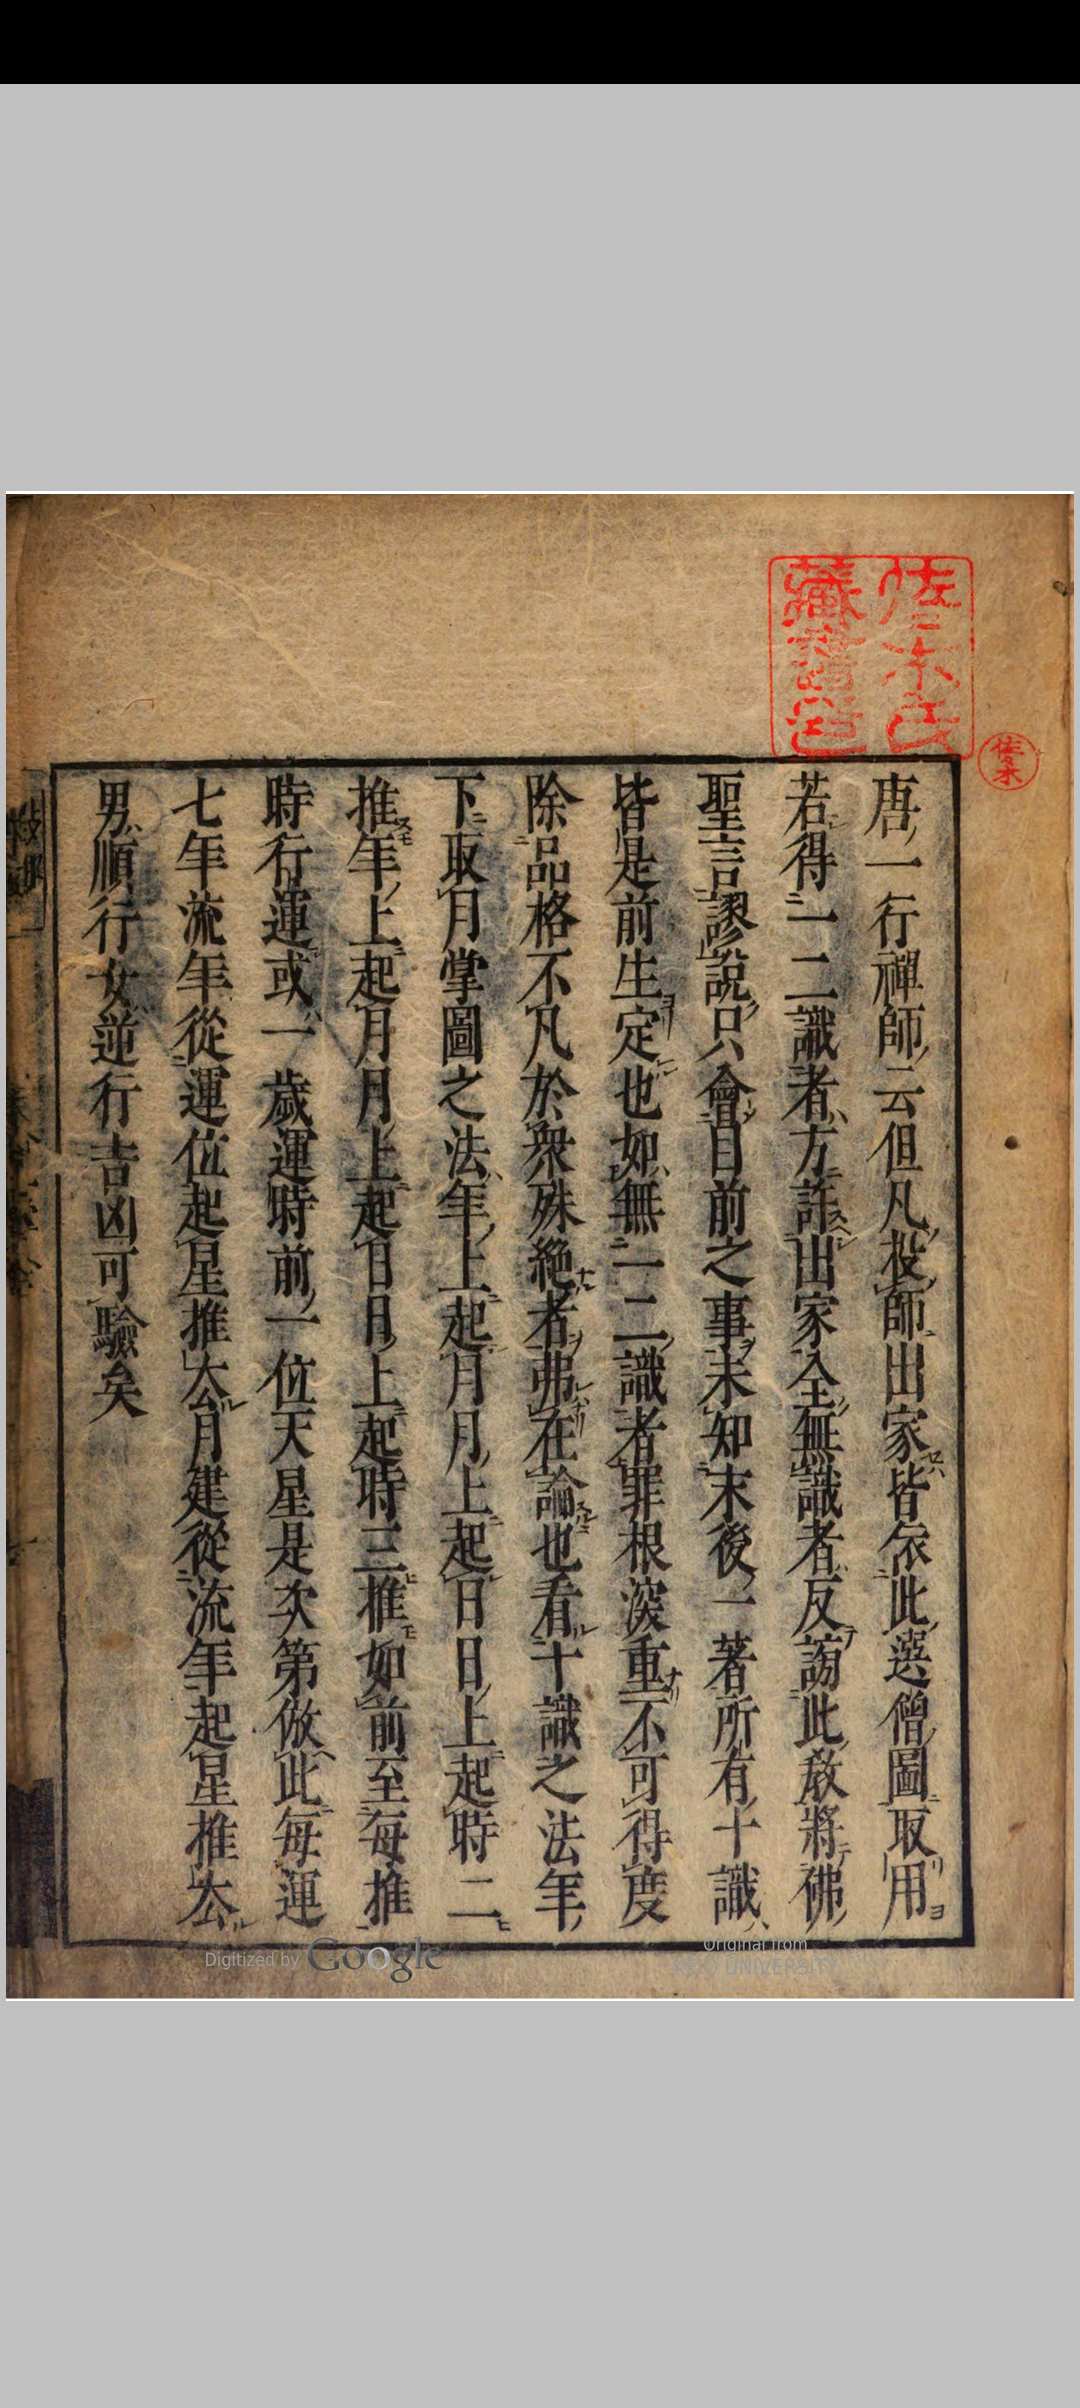 佐々木氏
藏書之印
佐々木
唐一行禪師云但凡投師出家皆依此選僧圖取用
若得一二識者方許出家全無識者反謗此教將佛
聖言謬説只會目前之事未知末後一著所有十識
皆是前生定也如無一二識者罪根深重不可得度
除品格不凡於衆殊絶者弗在論也看十識之法年
下取月掌圖之法年上起月月上起日日上起時二
推年上起月月上起日月上起時三推如前至每推
時行運或一歲運時前一位天星是次第倣此每運
七年流年從運位起星推去月建從流年起星推去
男順行女逆行吉凶可驗矣
Digitized by Google
Original from
UNIVERSITY